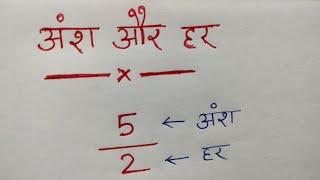 अंश और हर
x
5 ← अंश
2 ← हर